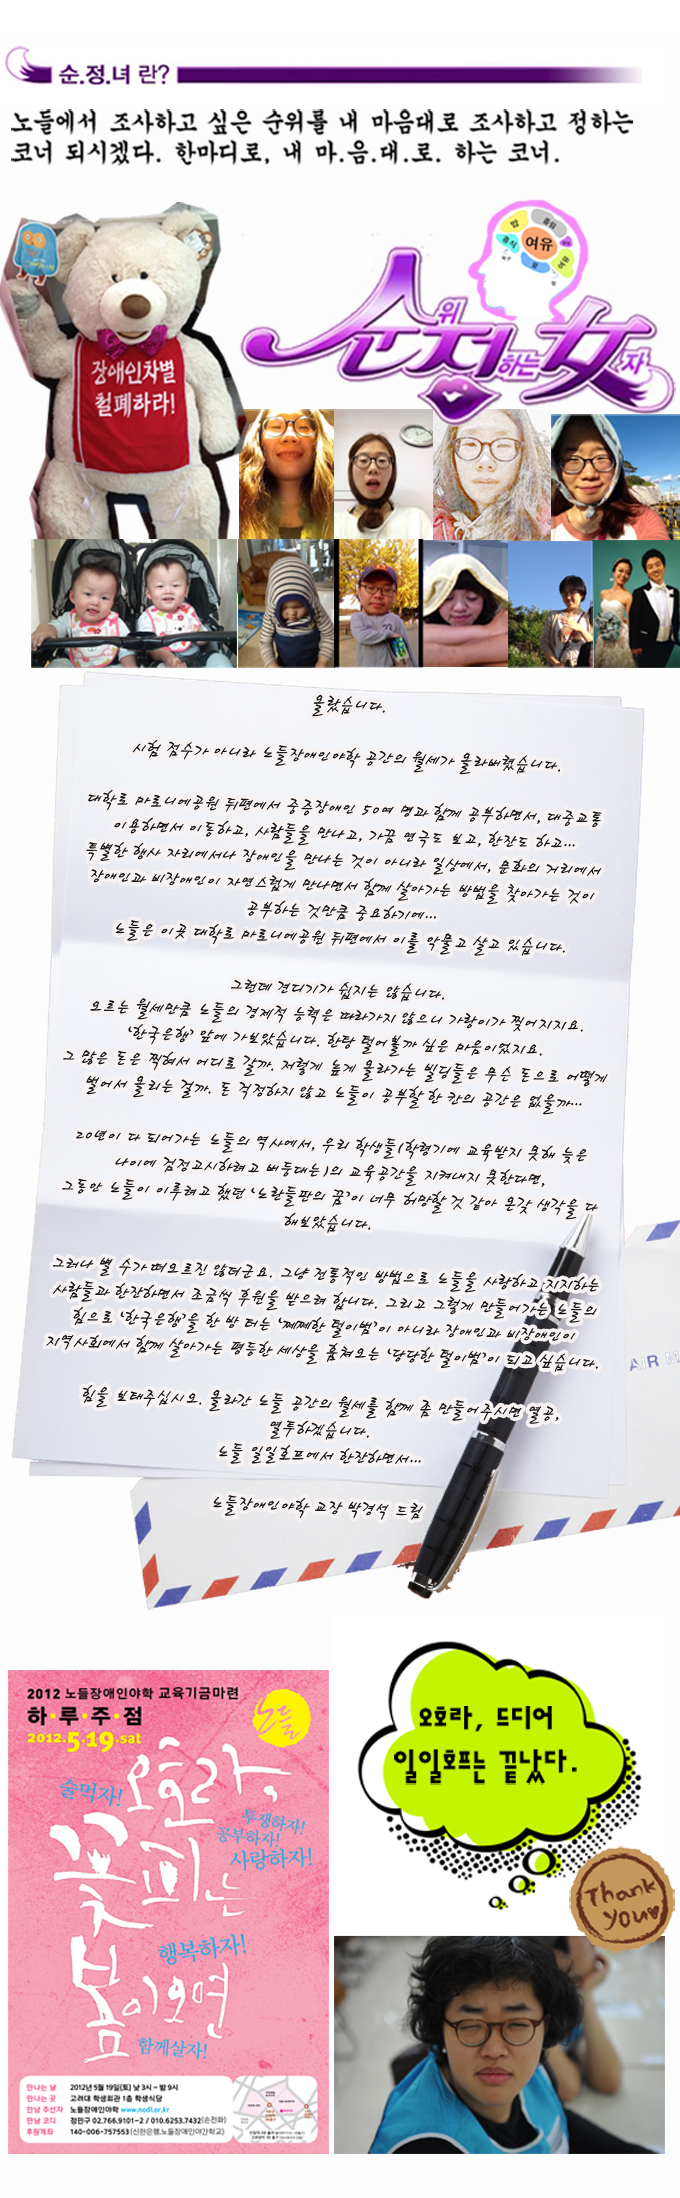 순.정.녀 란?
노들에서 조사하고 싶은 순위를 내 마음대로 조사하고 정하는
코너 되시겠다. 한마디로, 내 마.음.대.로. 하는 코너.
여유
휴식
순위정하는女자
장애인차별
철폐하라!
올랐습니다.
시험 점수가 아니라 노들장애인야학 공간의 월세가 올라버렸습니다.
대학로 마로니에공원 뒤편에서 중증장애인 50여 명과 함께 공부하면서, 대중교통
이용하면서 이동하고, 사람들을 만나고, 가끔 연극도 보고, 한잔도 하고...
특별한 행사 자리에서나 장애인을 만나는 것이 아니라 일상에서, 문화의 거리에서
장애인과 비장애인이 자연스럽게 만나면서 함께 살아가는 방법을 찾아가는 것이
공부하는 것만큼 중요하기에...
노들은 이곳 대학로 마로니에공원 뒤편에서 이를 악물고 살고 있습니다.
그런데 견디기가 쉽지는 않습니다.
오르는 월세만큼 노들의 경제적 능력은 따라가지 않으니 가랑이가 찢어지지요.
'한국은행' 앞에 가보았습니다. 한탕 털어볼까 싶은 마음이었지요.
그 많은 돈은 찍혀서 어디로 갈까. 저렇게 높게 올라가는 빌딩들은 무슨 돈으로 어떻게
벌어서 올리는 걸까. 돈 걱정하지 않고 노들이 공부할 한 칸의 공간은 없을까...
20년이 다 되어가는 노들의 역사에서, 우리 학생들(학령기에 교육받지 못해 늦은
나이에 검정고시하려고 버둥대는)의 교육공간을 지켜내지 못한다면,
그동안 노들이 이루려고 했던 '노란들판의 꿈'이 너무 허망할 것 같아 온갖 생각을 다
해보았습니다.
그러나 별 수가 떠오르진 않더군요. 그냥 전통적인 방법으로 노들을 사랑하고 지지하는
사람들과 한잔하면서 조금씩 후원을 받으려 합니다. 그리고 그렇게 만들어가는 노들의
힘으로 '한국은행'을 한 방 터는 '쩨쩨한 털이범'이 아니라 장애인과 비장애인이
지역사회에서 함께 살아가는 평등한 세상을 훔쳐오는 '당당한 털이범'이 되고 싶습니다.
힘을 보태주십시오. 올라간 노들 공간의 월세를 함께 좀 만들어주시면 열공,
열투하겠습니다.
노들 일일호프에서 한잔하면서...
노들장애인야학 교장 박경석 드림
AIR M
2012 노들장애인야학 교육기금마련
하·루·주·점
2012.5.19.sat
노들
술먹자!
오호라,
투쟁하자!
공부하자!
사랑하자!
꽃피는
행복하자!
봄이오면
함께살자!
만나는 날 2012년 5월 19일(토) 낮 3시 ~ 밤 9시
만나는 곳 고려대 학생회관 1층 학생식당
만남 주선자 노들장애인야학 www.nodl.or.kr
만남 코디 정민구 02.766.9101~2 / 010.6253.7432(손전화)
후원계좌 140-006-757553(신한은행,노들장애인야간학교)
오호라, 드디어
일일호프는 끝났다.
Thank
you